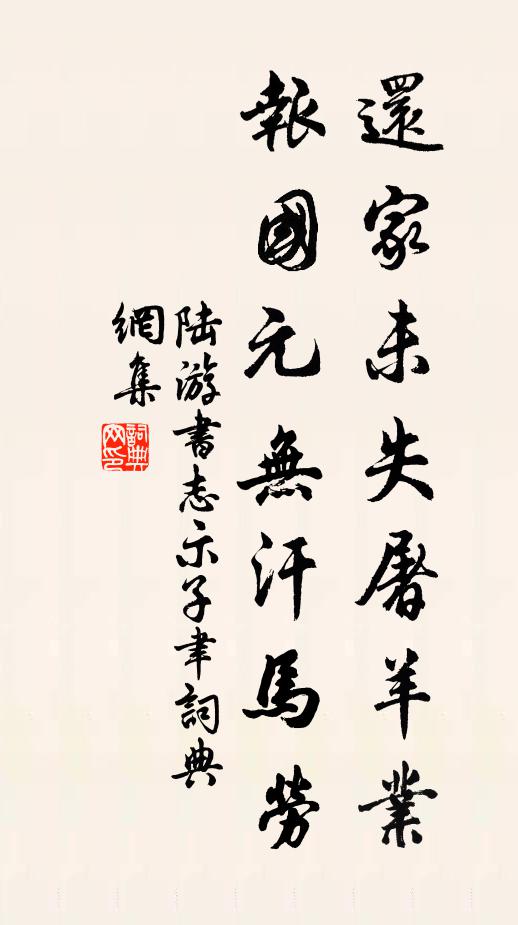 還家未失屠羊業
報國元無汗馬勞
陸游書志示子聿詞典
網集
詞典
网印